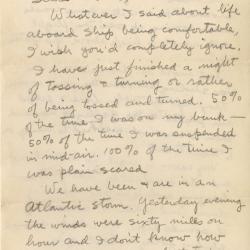 Whatever I said about life
aboard ship being comfortable,
I wish you'd completely ignore.
I have just finished a night
of tossing & turning or rather
of being tossed and turned. 50%
of the time I was on my bunk —
50% of the time I was suspended
in mid-air. 100% of the time I
was plain scared
We have been & are in an
Atlantic storm. Yesterday evening
the winds were sixty miles an
hour and I don't know how